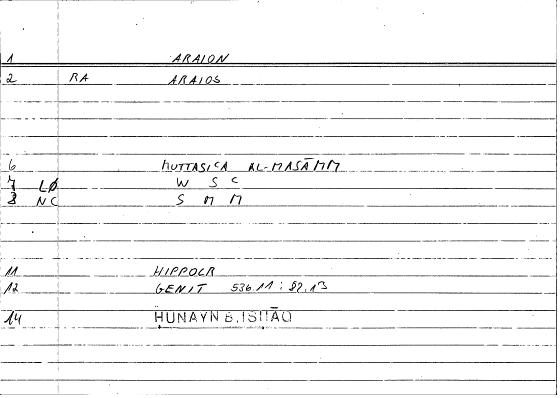 1 ARAION
2 RA ARAIOS
6 MUTTASICA AL-MASĀMM
7 LØ W S C
8 NC S M M
11 HIPPOCR
12 GENIT 536.11 : 82.13
14 HUNAYN B. ISḤĀQ